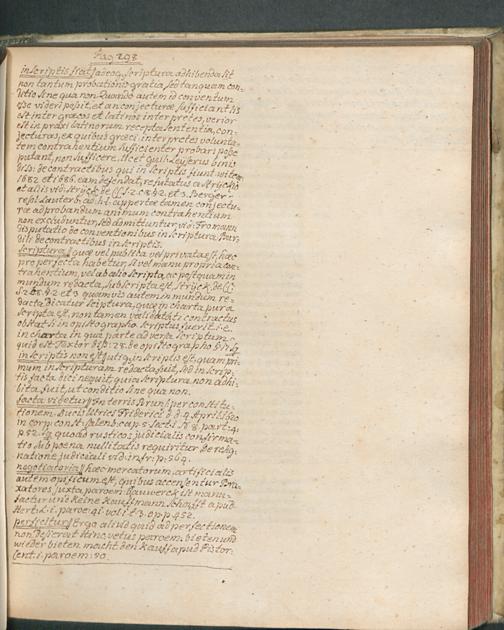 Pag 293
in scriptis fiat] adeoq, scriptura adhibenda sit
non tantum probationis gratia, sed tanquam con-
ditio sine qua non. Quando autem id conventum
esse videri possit, et an conjecturæ sufficiant lis
est inter græcos et latinos interpretes, verior
est in praxi latinorum recepta sententia, con-
jecturas, ex quibus græci interpretes volunta-
tem contrahentium sufficienter probari posse
putant, non sufficere. Licet Guil: Leyserus binis
diss: de contractibus qui in scriptis fiunt
1682 et 1686. eam defendat, refutatus a Strÿckio
et aliis vid: Strÿck de
resp. Lauterb. ad h. l. appertæ tamen conjectu-
ræ ad probandum animum contrahentium
non excluduntur, sed admittuntur, vid: Fromann
disputatio de conventionibus in scriptura
de contractibus in scriptis.
scriptura] quæ vel publica vel privata est, hæc
pro perfecta habetur, si vel manu propria con-
trahentium, vel ab alio scripta, ac postquam in
mundum redacta, subscripta est, Strÿck. de
et 3. quamvis autem in mundum re-
dacta dicatur scriptura, quæ in charta pura
scripta est, non tamen validitati contractus
obstat si in opistographo scriptus fuerit i. e.
in charta in qua parte adversa scriptum
quid est Textor disp: 28. de opistographo
in scriptis non est] utiq, in scriptis est, quam pri-
mum in scripturam redacta fuit, sed in scrip-
tis facta dici nequit, quia scriptura non adhi-
bita fuit, ut conditio sine qua non.
facta videtur] In terris Brunsv. per constitu-
tionem Ducis Ulrici Friderici d. d. 9. April
in corp: const: Calenb: cap. 5
p. 52. quoad rusticos judicialis confirma-
tio sub poena nullitatis requiritur. De resig-
natione judiciali vid: infr: p. 569.
negotiatoria] hæc mercatorum, artificialis
autem opificum est, quibus accensentur
juxta paroem: Bauwerck ist manu-
factur und keine Kauffmannschafft apud
Hert. d. l. paroe: 41. vol: 1. t. 3. opp. 452.
perficitur] Ergo aliud quid ad perfectionem
non desiderat. Hinc vetus paroem: bieten und
wieder bieten macht den Kauff apud Pistor:
Cent. 1. paroem: 90.